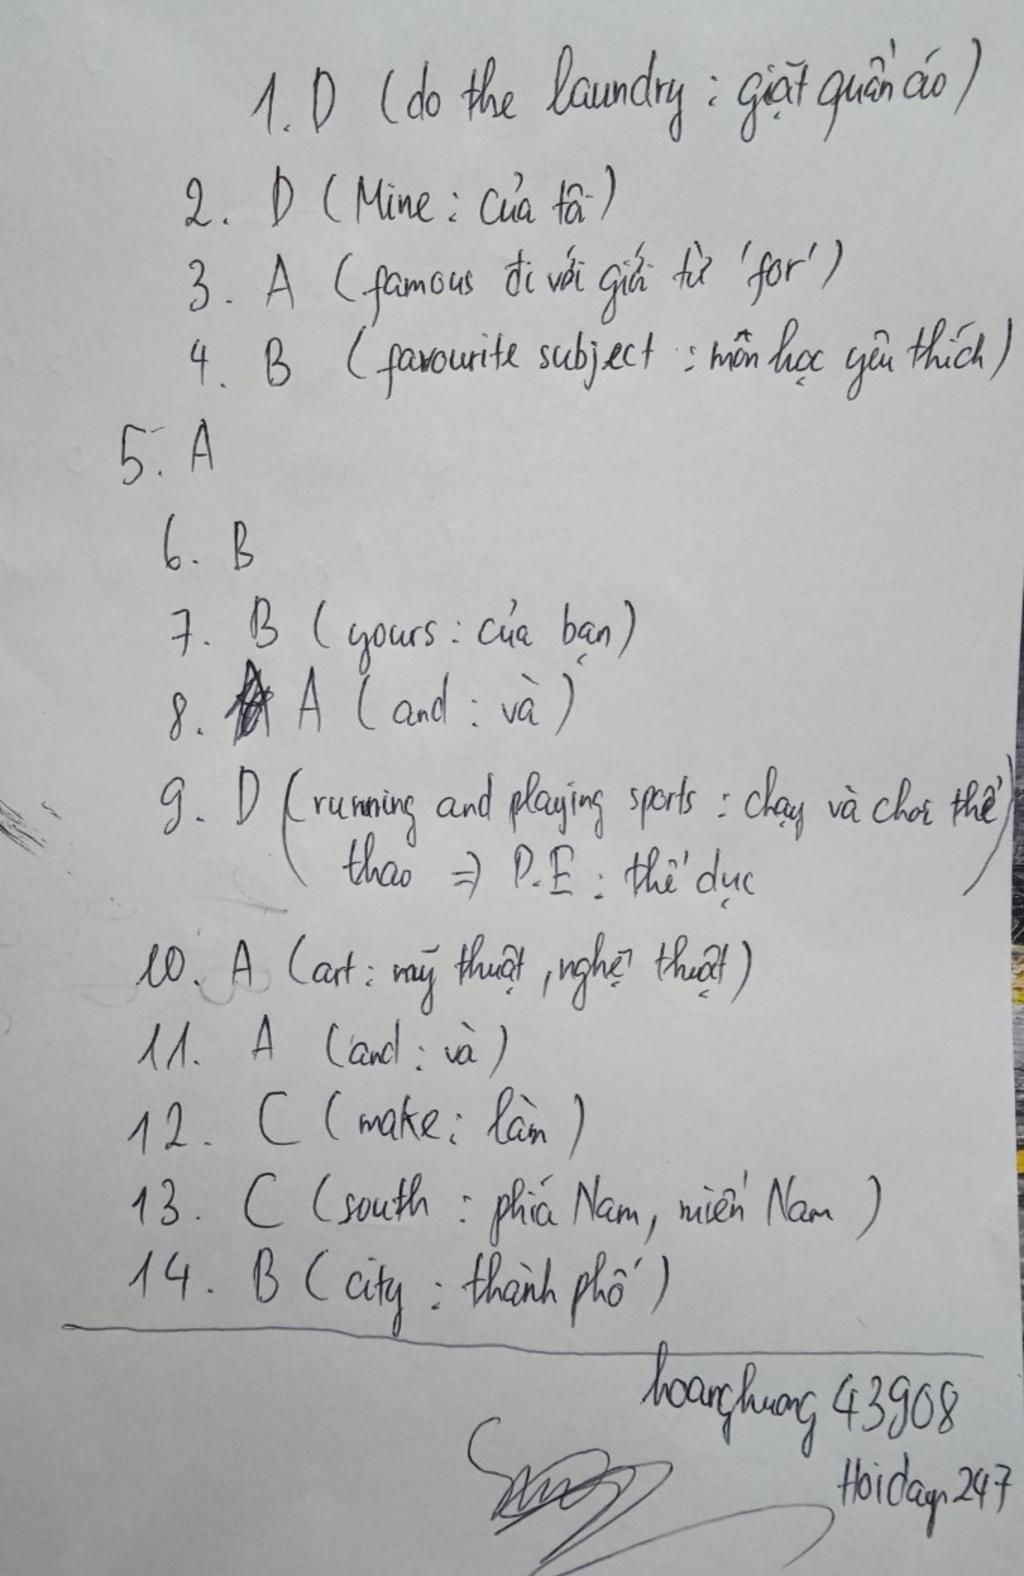 1. D (do the laundry : giặt quần áo)
2. D (Mine : của tôi)
3. A (famous đi với giới từ 'for')
4. B (favourite subject : môn học yêu thích)
5. A
6. B
7. B (yours : của bạn)
8. A (and : và)
9. D (running and playing sports : chạy và chơi thể
thao => P.E : thể dục)
10. A (art : mỹ thuật, nghệ thuật)
11. A (and : và)
12. C (make : làm)
13. C (south : phiá Nam, miền Nam)
14. B (city : thành phố)
hoanghuong 43908
Hoidap247